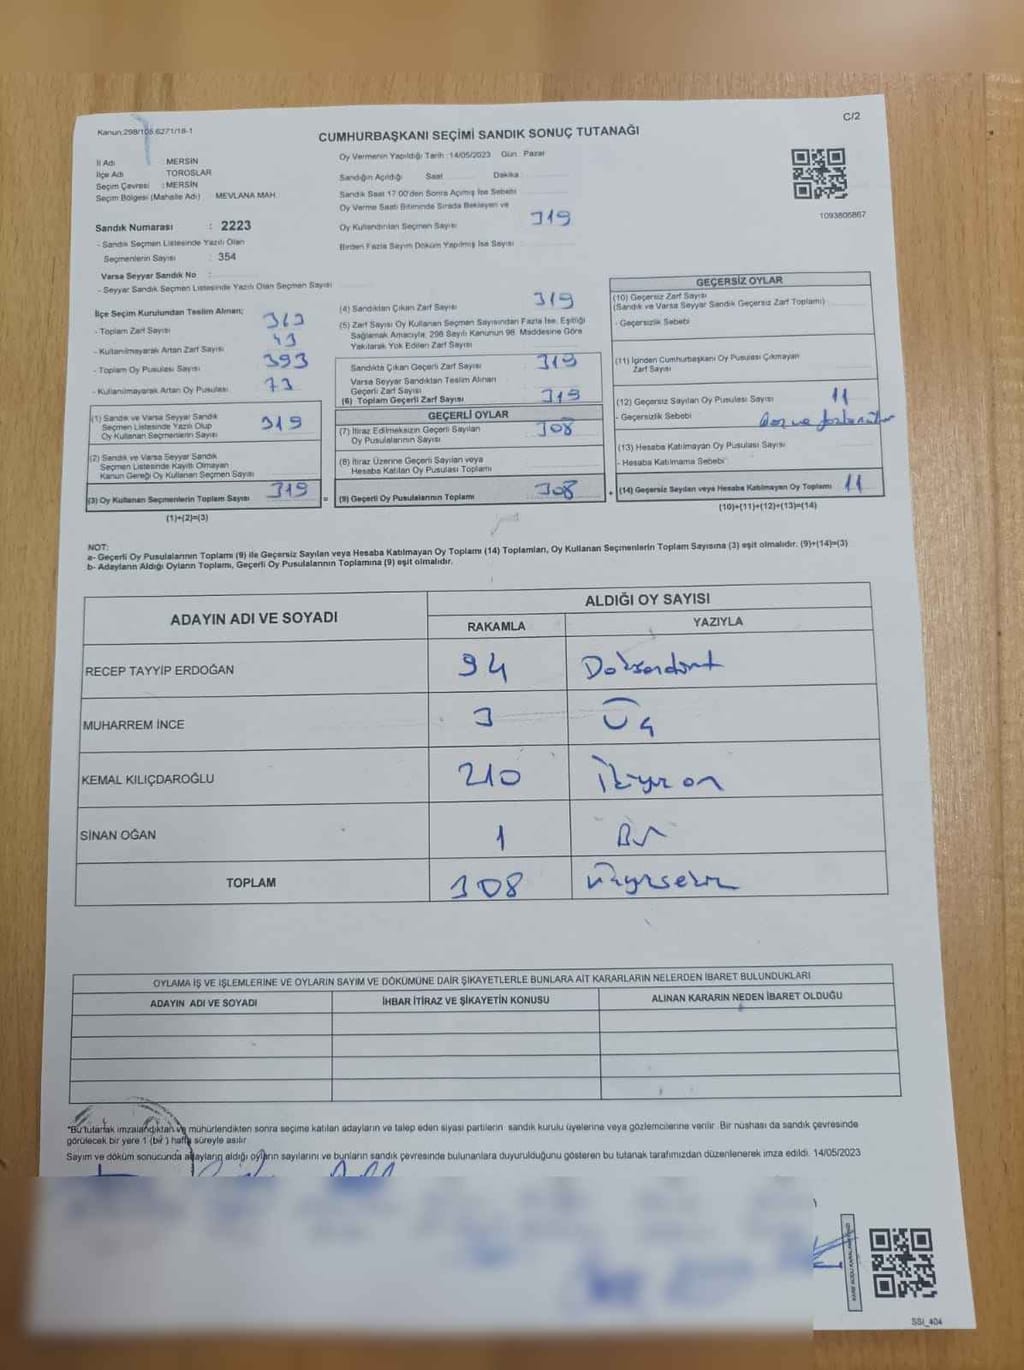 Kanun:298/105.6271/18-1
C/2
CUMHURBAŞKANI SEÇİMİ SANDIK SONUÇ TUTANAĞI
İl Adı MERSİN
İlçe Adı TOROSLAR
Seçim Çevresi : MERSİN
Seçim Bölgesi (Mahalle Adı) MEVLANA MAH.
Oy Vermenin Yapıldığı Tarih :14/05/2023 Gün Pazar
Sandığın Açıldığı Saat Dakika
Sandık Saat 17:00'den Sonra Açılmış İse Sebebi
Oy Verme Saati Bitiminde Sırada Bekleyen ve
Oy Kullandırılan Seçmen Sayısı 319
Birden Fazla Sayım Döküm Yapılmış İse Sayısı
1093806867
Sandık Numarası : 2223
- Sandık Seçmen Listesinde Yazılı Olan
Seçmenlerin Sayısı : 354
Varsa Seyyar Sandık No :
- Seyyar Sandık Seçmen Listesinde Yazılı Olan Seçmen Sayısı
İlçe Seçim Kurulundan Teslim Alınan;
- Toplam Zarf Sayısı
- Kullanılmayarak Artan Zarf Sayısı
- Toplam Oy Pusulası Sayısı 393
- Kullanılmayarak Artan Oy Pusulası 73
(1) Sandık ve Varsa Seyyar Sandık
Seçmen Listesinde Yazılı Olup
Oy Kullanan Seçmenlerin Sayısı 319
(2) Sandık ve Varsa Seyyar Sandık
Seçmen Listesinde Kayıtlı Olmayan
Kanun Gereği Oy Kullanan Seçmen Sayısı
(3) Oy Kullanan Seçmenlerin Toplam Sayısı 319 =
(1)+(2)=(3)
(4) Sandıktan Çıkan Zarf Sayısı 319
(5) Zarf Sayısı Oy Kullanan Seçmen Sayısından Fazla İse, Eşitliği
Sağlamak Amacıyla, 298 Sayılı Kanunun 98. Maddesine Göre
Yakılarak Yok Edilen Zarf Sayısı
Sandıkta Çıkan Geçerli Zarf Sayısı 319
Varsa Seyyar Sandıktan Teslim Alınan
Geçerli Zarf Sayısı
(6) Toplam Geçerli Zarf Sayısı 319
GEÇERLİ OYLAR
(7) İtiraz Edilmeksizin Geçerli Sayılan
Oy Pusulalarının Sayısı 308
(8) İtiraz Üzerine Geçerli Sayılan veya
Hesaba Katılan Oy Pusulası Toplamı
(9) Geçerli Oy Pusulalarının Toplamı 308 +
GEÇERSİZ OYLAR
(10) Geçersiz Zarf Sayısı
(Sandık ve Varsa Seyyar Sandık Geçersiz Zarf Toplamı)
- Geçersizlik Sebebi
(11) İçinden Cumhurbaşkanı Oy Pusulası Çıkmayan
Zarf Sayısı
(12) Geçersiz Sayılan Oy Pusulası Sayısı 11
- Geçersizlik Sebebi
(13) Hesaba Katılmayan Oy Pusulası Sayısı
- Hesaba Katılmama Sebebi
(14) Geçersiz Sayılan veya Hesaba Katılmayan Oy Toplamı 11
(10)+(11)+(12)+(13)=(14)
NOT:
a- Geçerli Oy Pusulalarının Toplamı (9) ile Geçersiz Sayılan veya Hesaba Katılmayan Oy Toplamı (14) Toplamları, Oy Kullanan Seçmenlerin Toplam Sayısına (3) eşit olmalıdır. (9)+(14)=(3)
b- Adayların Aldığı Oyların Toplamı, Geçerli Oy Pusulalarının Toplamına (9) eşit olmalıdır.
ADAYIN ADI VE SOYADI
ALDIĞI OY SAYISI
RAKAMLA YAZIYLA
RECEP TAYYİP ERDOĞAN 94 Doksandört
MUHARREM İNCE 3 Üç
KEMAL KILIÇDAROĞLU 210 İkiyüz on
SİNAN OĞAN 1 Bir
TOPLAM 308 Üçyüzsekiz
OYLAMA İŞ VE İŞLEMLERİNE VE OYLARIN SAYIM VE DÖKÜMÜNE DAİR ŞİKAYETLERLE BUNLARA AİT KARARLARIN NELERDEN İBARET BULUNDUKLARI
ADAYIN ADI VE SOYADI İHBAR İTİRAZ VE ŞİKAYETİN KONUSU ALINAN KARARIN NEDEN İBARET OLDUĞU
*Bu tutanak imzalandıktan ve mühürlendikten sonra seçime katılan adayların ve talep eden siyasi partilerin sandık kurulu üyelerine veya gözlemcilerine verilir. Bir nüshası da sandık çevresinde
görülecek bir yere 1 (bir) hafta süreyle asılır.
Sayım ve döküm sonucunda adayların aldığı oyların sayılarını ve bunların sandık çevresinde bulunanlara duyurulduğunu gösteren bu tutanak tarafımızdan düzenlenerek imza edildi. 14/05/2023
SSI_404